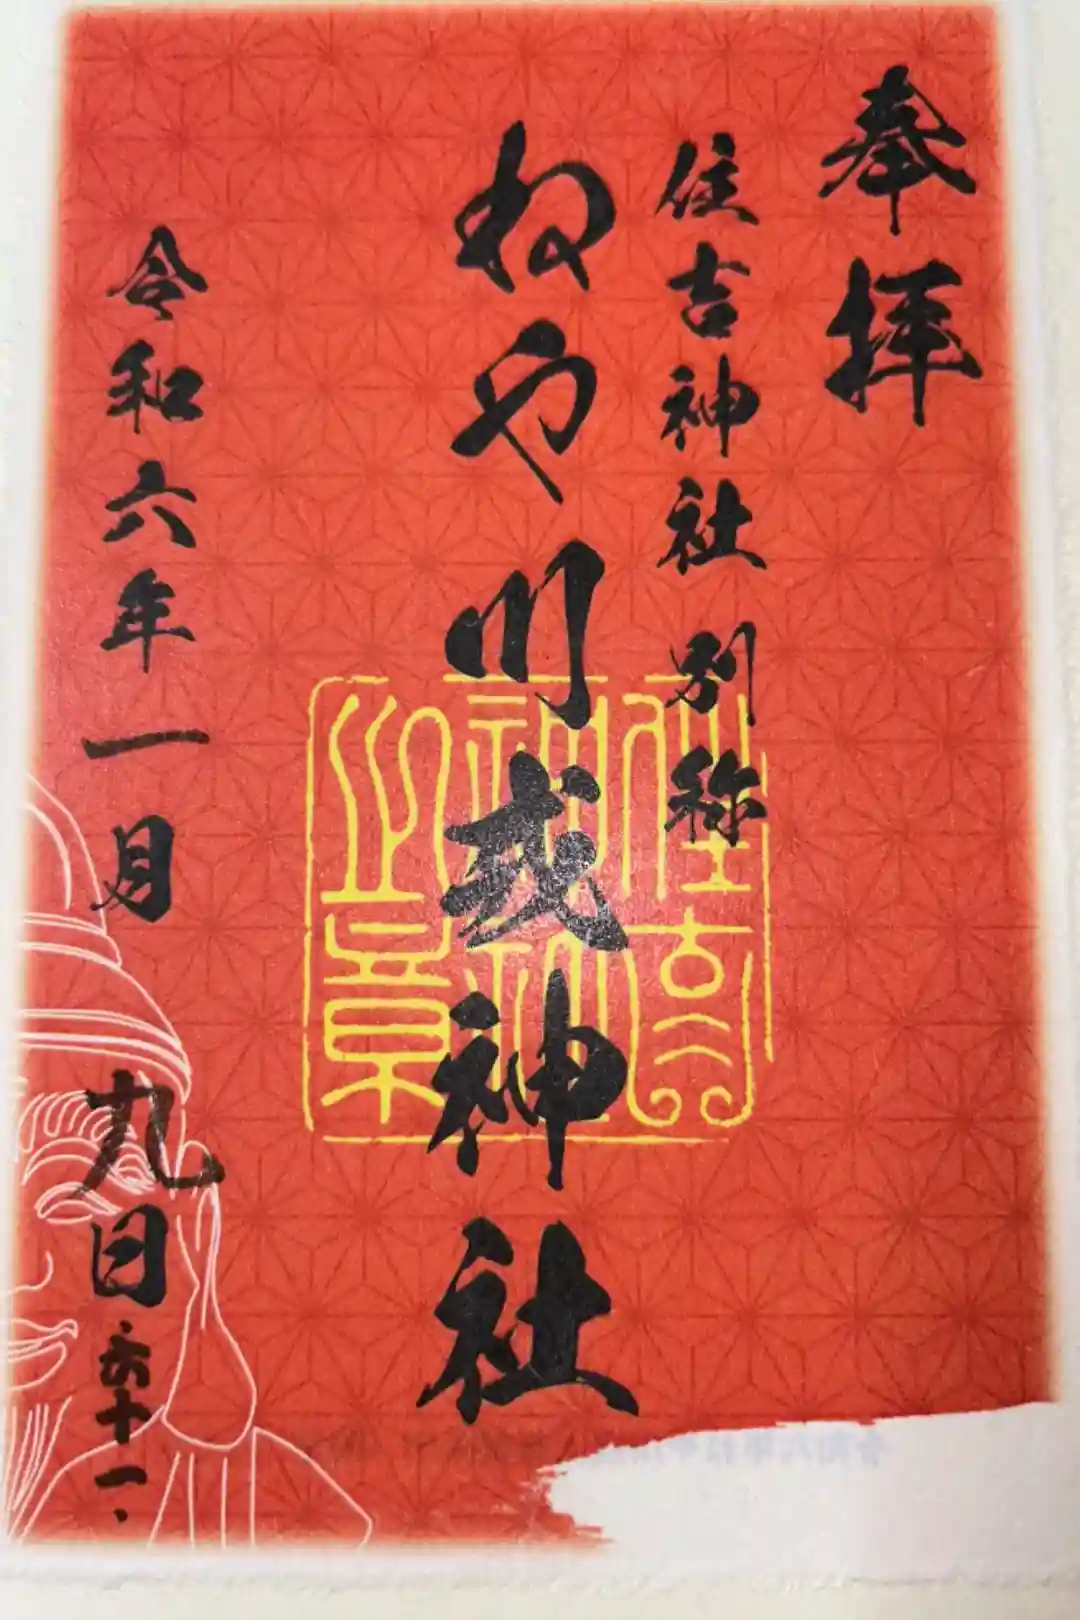 奉拝
住吉神社別称
ねや川戎神社
令和六年一月九日
住吉
神社
之章